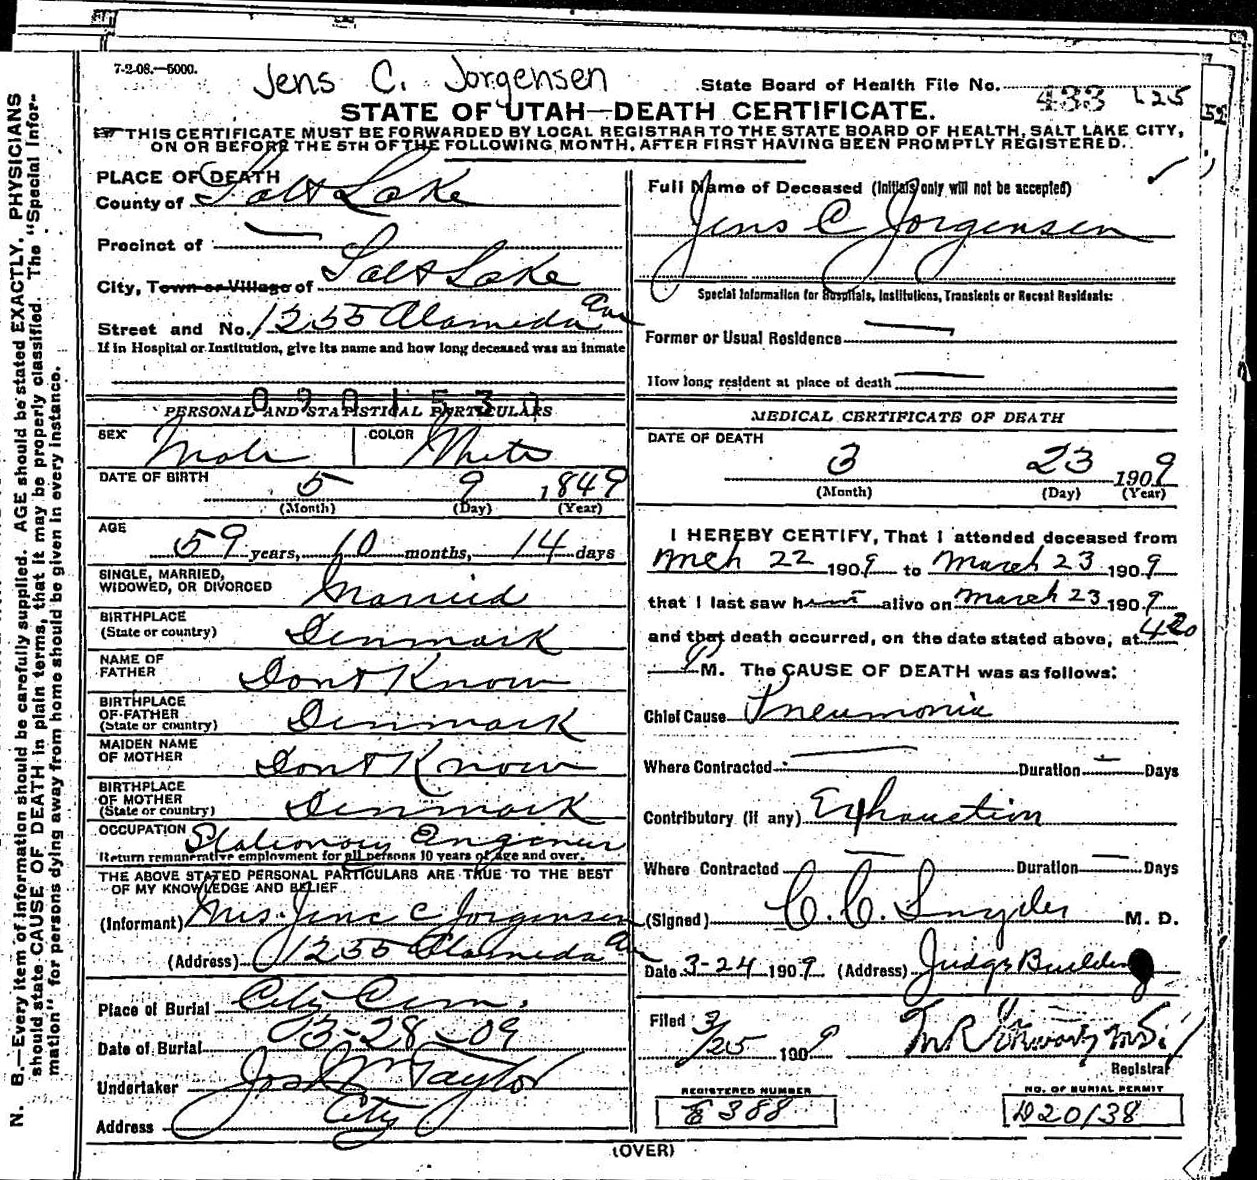 7-2-08.—5000.
Jens C. Jorgensen
State Board of Health File No. 433 125
STATE OF UTAH—DEATH CERTIFICATE.
THIS CERTIFICATE MUST BE FORWARDED BY LOCAL REGISTRAR TO THE STATE BOARD OF HEALTH, SALT LAKE CITY,
ON OR BEFORE THE 5TH OF THE FOLLOWING MONTH, AFTER FIRST HAVING BEEN PROMPTLY REGISTERED.
PLACE OF DEATH
County of Salt Lake
Precinct of —
City, Town or Village of Salt Lake
Street and No. 1235 Alameda Ave
If in Hospital or Institution, give its name and how long deceased was an inmate
PERSONAL AND STATISTICAL PARTICULARS
SEX Male COLOR White
DATE OF BIRTH 5 9 1849
(Month) (Day) (Year)
AGE 59 years, 10 months, 14 days
SINGLE, MARRIED,
WIDOWED, OR DIVORCED Married
BIRTHPLACE
(State or country) Denmark
NAME OF
FATHER Dont Know
BIRTHPLACE
OF FATHER
(State or country) Denmark
MAIDEN NAME
OF MOTHER Dont Know
BIRTHPLACE
OF MOTHER
(State or country) Denmark
OCCUPATION Stationary Engineer
Return remunerative employment for all persons 10 years of age and over.
THE ABOVE STATED PERSONAL PARTICULARS ARE TRUE TO THE BEST
OF MY KNOWLEDGE AND BELIEF
(Informant) Mrs. Jens C Jorgensen
(Address) 1235 Alameda Ave
Place of Burial City Cem.
Date of Burial 3-28-09
Undertaker Jos Wm Taylor
Address City
Full Name of Deceased (Initials only will not be accepted)
Jens C Jorgensen
Special Information for Hospitals, Institutions, Transients or Recent Residents:
Former or Usual Residence —
How long resident at place of death —
MEDICAL CERTIFICATE OF DEATH
DATE OF DEATH
3 23 1909
(Month) (Day) (Year)
I HEREBY CERTIFY, That I attended deceased from
Mch 22 1909 to March 23 1909
that I last saw him alive on March 23 1909
and that death occurred, on the date stated above, at 4 20
P M. The CAUSE OF DEATH was as follows:
Chief Cause Pneumonia
Where Contracted — Duration — Days
Contributory (if any) Exhaustion
Where Contracted — Duration — Days
(Signed) C. C. Snyder M. D.
Date 3-24 1909 (Address) Judge Building
Filed 3/25 1909
Registrar
REGISTERED NUMBER
E 388
NO. OF BURIAL PERMIT
D20138
(OVER)
N. B.—Every item of information should be carefully supplied. AGE should be stated EXACTLY. PHYSICIANS
should state CAUSE OF DEATH in plain terms, that it may be properly classified. The "Special Infor-
mation" for persons dying away from home should be given in every instance.